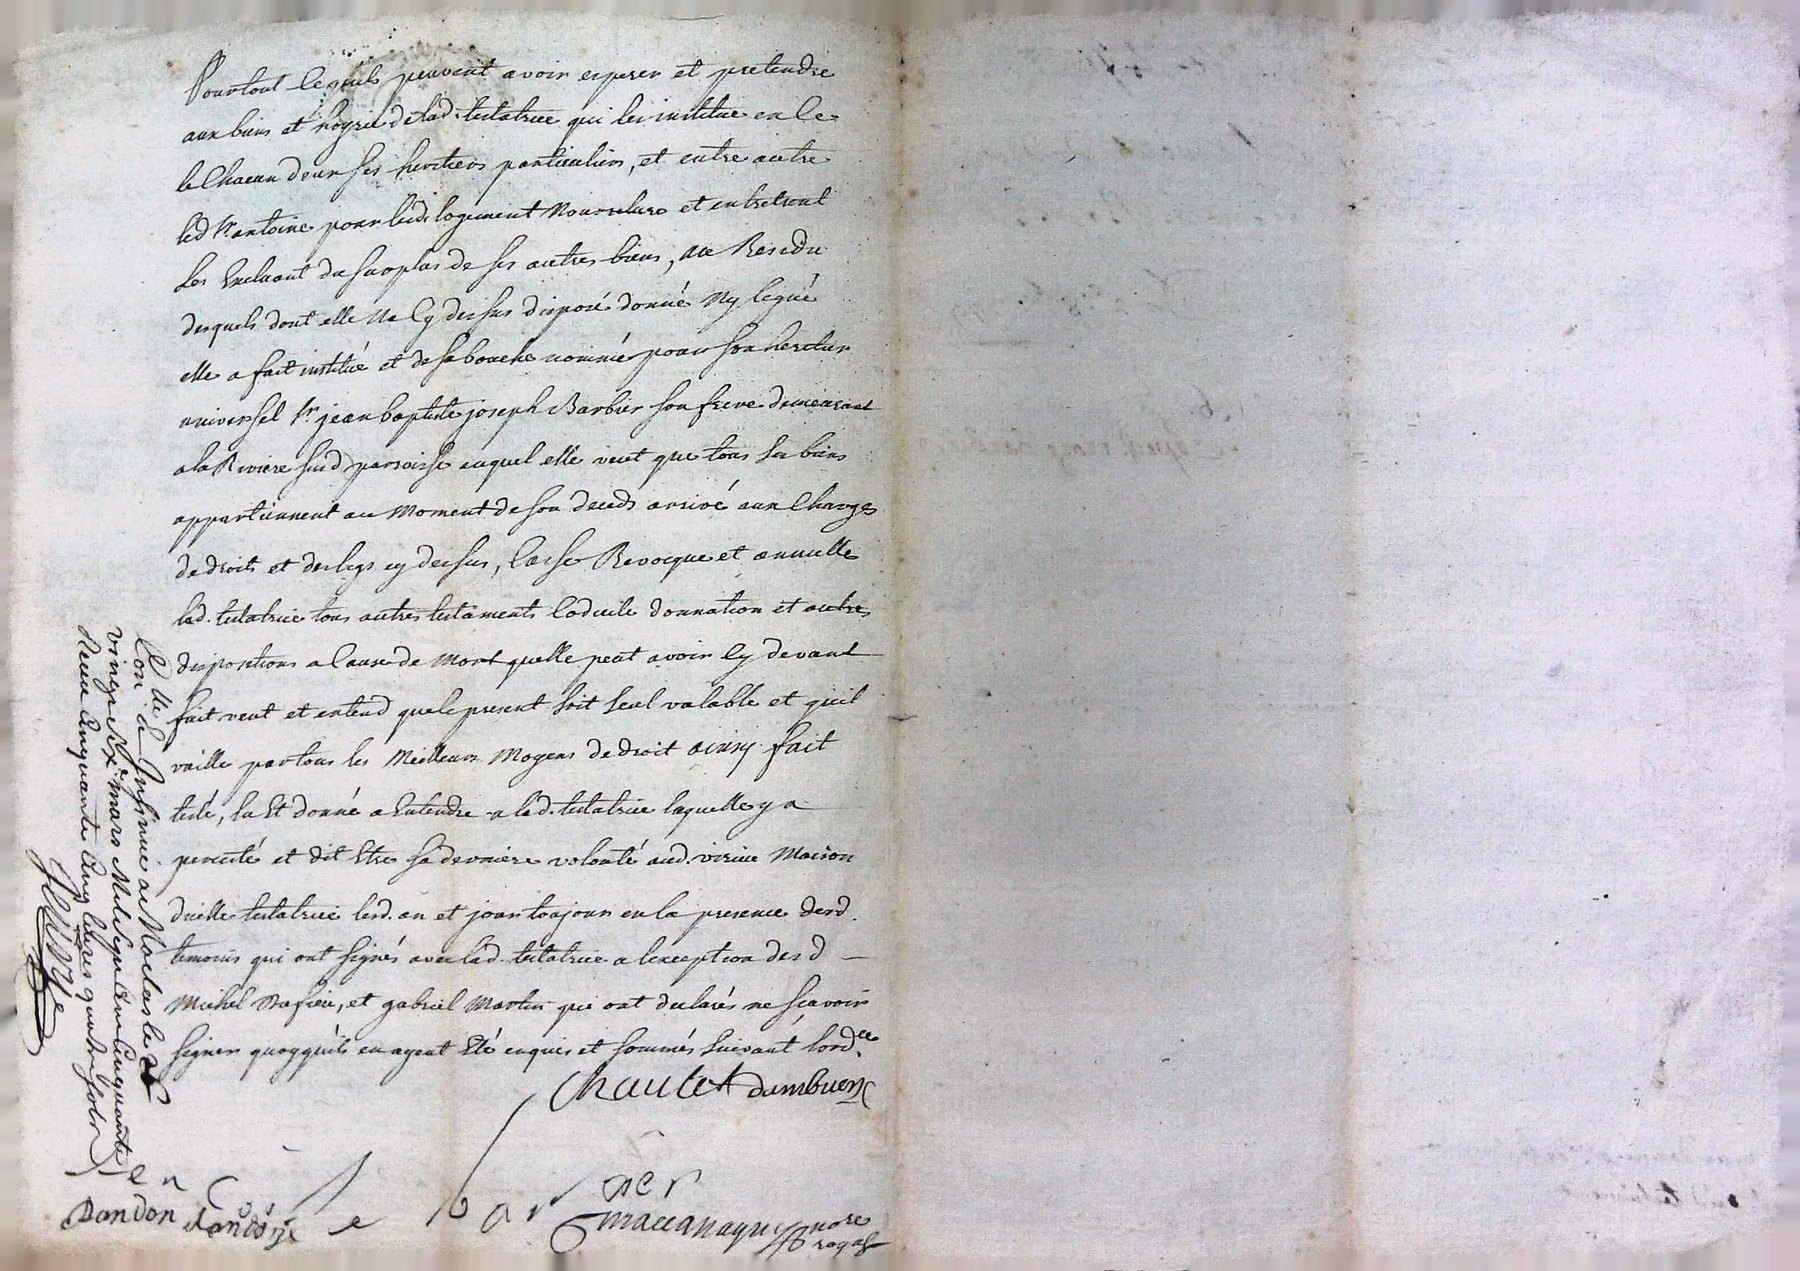 Pourtout ce quils peuvent avoir esperer et pretendre
aux biens et hoyrie de lad. testatrice qui les institue en ce
le Chacun deux ses heritiers particuliers, et entre autre
led Sr. antoine pour led. logement Nourriture et entretient
Les Excluant du surplus de ses autres biens, au Residu
desquels dont elle Na Cy dessus disposé donné Ny legué
elle a fait institué et de sa bouche nommé pour son heritier
universel Sr. jean baptiste joseph Barbier son frere demeurant
a la Riviere susd. parroisse auquel elle veut que tous ses biens
appartiennent au Moment de son deceds arrivé aux Charges
de droits et des legs cy dessus, Casse Revocque et annulle
lad. testatrice tous autres testaments Codicile donnation et autres
dispositions a Cause de Mort quelle peut avoir Cy devant
fait veut et entend que le present soit seul valable et quil
vaille par tous les Meilleurs Moyens de droit ainsy fait
testé, lu Et donné a Entendre a lad. testatrice laquelle y a
percisté et dit Etre sa derniere volonté aud. Maison
dicelle testatrice lesd. an et jour toujour en la presence desd.
temoins qui ont signés avec lad. testatrice a lexception des d
Michel, et gabriel Martin qui ont declarés ne sçavoir
signer quoyquils en ayent Eté enquis et sommés suivant lord.ce
Chautet dambuen
bar
Dandon
nore
royal
Con.lé Insinué au le
vingt mars Mil sept Cent Cinquante
Reçu Cinquante Cinq livres quatre sols